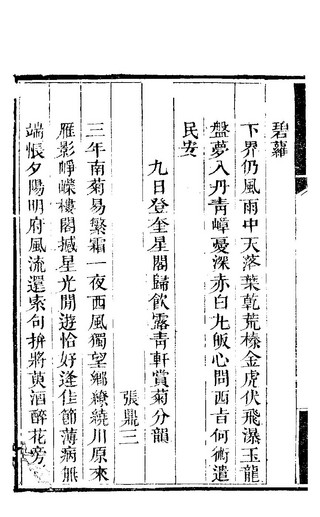 碧蘿
下界仍風雨中天落葉乾荒榛金虎伏飛瀑玉龍
盤夢入丹青嶂憂深赤白丸飯心問西旨何術遣
民安
九日登奎星閣歸飲露青軒賞菊分韻
張鼎三
三年南菊易繁霜一夜西風獨望鄉繚繞川原來
雁影崢嶸樓閣摵星光閒遊恰好逢佳節薄病無
端悵夕陽明府風流還索句拚將萸酒醉花旁